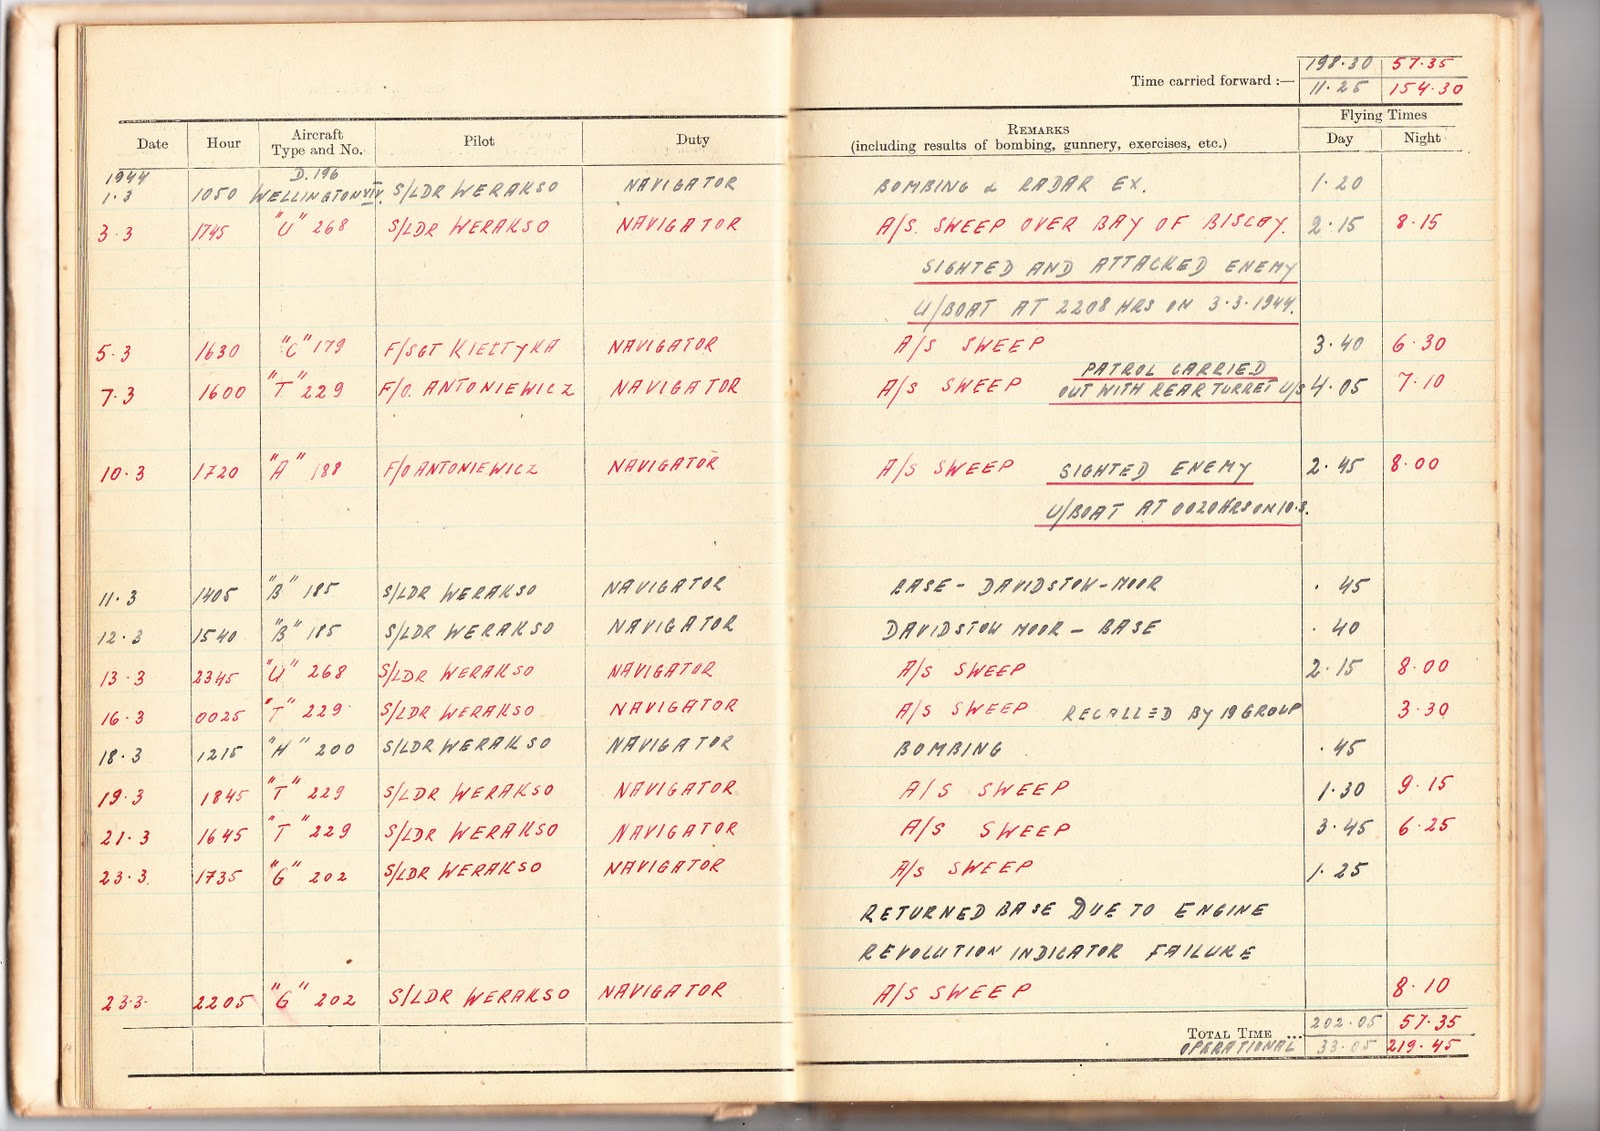 198.30 57.35
Time carried forward :— 11.25 154.30
Date Hour Aircraft Type and No. Pilot Duty REMARKS (including results of bombing, gunnery, exercises, etc.) Flying Times Day Night
1944 D.196
1.3 1050 WELLINGTON XIV. S/LDR WERAKSO NAVIGATOR BOMBING & RADAR EX. 1.20
3.3 1745 "U" 268 S/LDR WERAKSO NAVIGATOR A/S. SWEEP OVER BAY OF BISCAY. 2.15 8.15
SIGHTED AND ATTACKED ENEMY
U/BOAT AT 2208 HRS ON 3.3.1944.
5.3 1630 "C" 179 F/SGT KIELTYKA NAVIGATOR A/S SWEEP 3.40 6.30
PATROL CARRIED
7.3 1600 "T" 229 F/O. ANTONIEWICZ NAVIGATOR A/S SWEEP OUT WITH REAR TURRET U/S 4.05 7.10
10.3 1720 "A" 188 F/O ANTONIEWICZ NAVIGATOR A/S SWEEP SIGHTED ENEMY 2.45 8.00
U/BOAT AT 0020 HRS ON 10.3.
11.3 1405 "B" 185 S/LDR WERAKSO NAVIGATOR BASE - DAVIDSTOW-MOOR .45
12.3 1540 "B" 185 S/LDR WERAKSO NAVIGATOR DAVIDSTOW MOOR - BASE .40
13.3 2345 "U" 268 S/LDR WERAKSO NAVIGATOR A/S SWEEP 2.15 8.00
16.3 0025 "T" 229 S/LDR WERAKSO NAVIGATOR A/S SWEEP RECALLED BY 19 GROUP 3.30
18.3 1215 "H" 200 S/LDR WERAKSO NAVIGATOR BOMBING .45
19.3 1845 "T" 229 S/LDR WERAKSO NAVIGATOR A/S SWEEP 1.30 9.15
21.3 1645 "T" 229 S/LDR WERAKSO NAVIGATOR A/S SWEEP 3.45 6.25
23.3. 1735 "G" 202 S/LDR WERAKSO NAVIGATOR A/S SWEEP 1.25
RETURNED BASE DUE TO ENGINE
REVOLUTION INDICATOR FAILURE
23.3. 2205 "G" 202 S/LDR WERAKSO NAVIGATOR A/S SWEEP 8.10
TOTAL TIME ... 202.05 57.35
OPERATIONAL 33.05 219.45